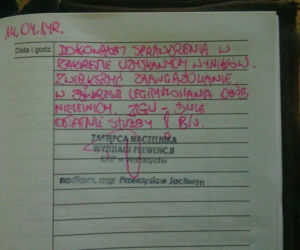 14.04.14r.
Data i godz.
DOKONAŁEM SPRAWDZENIA W
ZAKRESIE UZYSKANYCH WYNIKÓW.
ZWIĘKSZYĆ ZAANGAŻOWANIE
W ZAKRESIE LEGITYMOWANIA OSÓB
NIELETNICH
SŁUŻBY
ZASTĘPCA NACZELNIKA
WYDZIAŁU PREWENCJI
KMP w Wałbrzychu
nadkom. mgr Przemysław